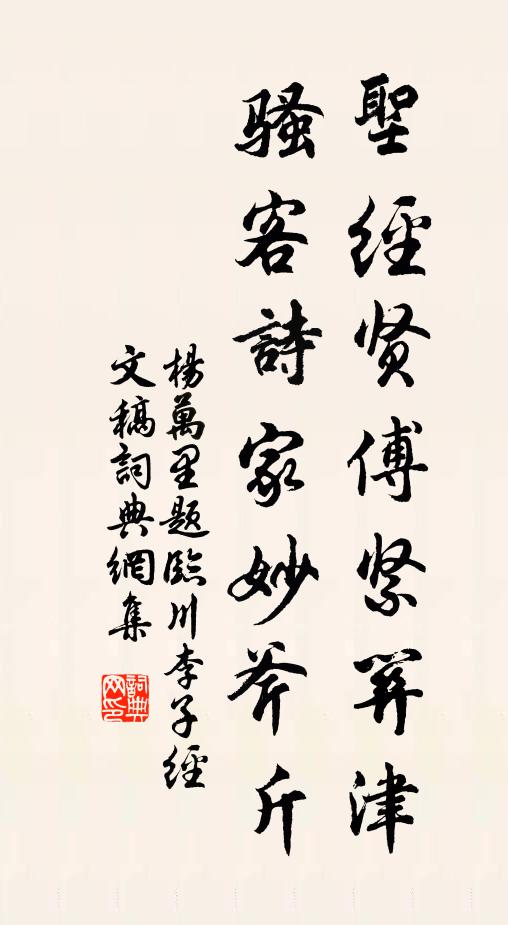 聖經賢傅緊關津
騷客詩家妙斧斤
楊萬里題臨川李子經
文稿詞典網集
詞典
网印